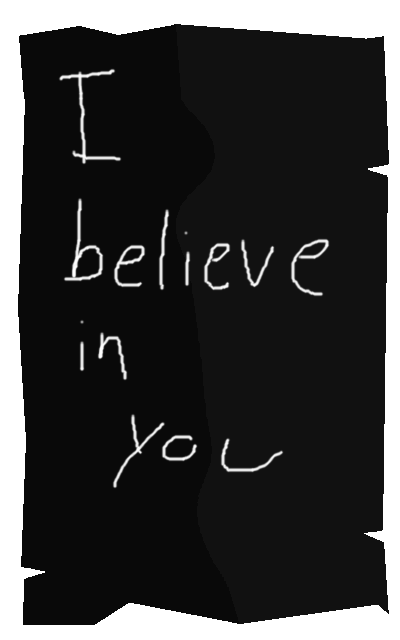 I
believe
in
you